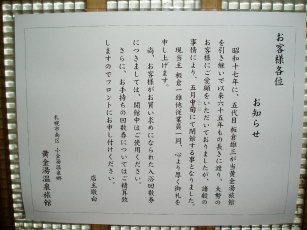 お客様各位
お知らせ
昭和十七年に、五代目 板倉雄三が当黄金湯旅館
を引き継いで以来六十五年もの長きに渡り、大勢の
お客様にご愛顧をいただいておりましたが、諸般の
事情により、五月中旬にて閉館する事となりました。
現当主 板倉一雄他従業員一同、心より厚く御礼を
申し上げます。
尚、お客様がお買い求めになられた入浴回数券
につきましては、閉館中はご使用ください。
さらに、お手持ちの回数券についてはご精算致
しますのでフロントにお申し付けください。
店主敬白
札幌市南区 小金湯温泉郷
黄金湯温泉旅館